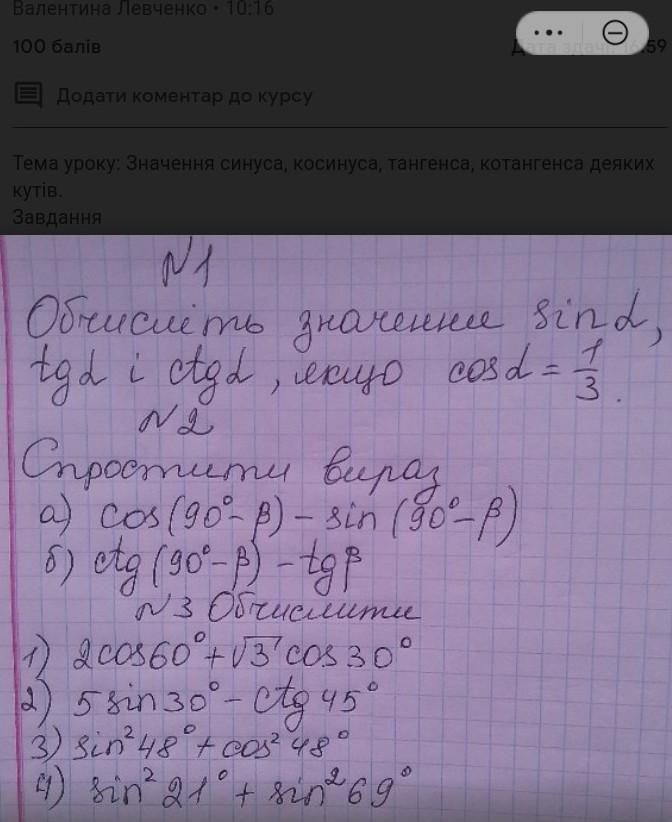 Валентина Левченко • 10:16
100 балів
Дата здачі: 16:59
Додати коментар до курсу
Тема уроку: Значення синуса, косинуса, тангенса, котангенса деяких
кутів.
Завдання
N1
Обчисліть значення sin α,
tg α і ctg α, якщо cos α = 1/3.
N2
Спростити вираз
а) cos(90°-β) - sin(90°-β)
б) ctg(90°-β) - tgβ
N3 Обчислити
1) 2cos60° + √3 cos30°
2) 5 sin30° - ctg 45°
3) sin² 48° + cos² 48°
4) sin² 21° + sin² 69°